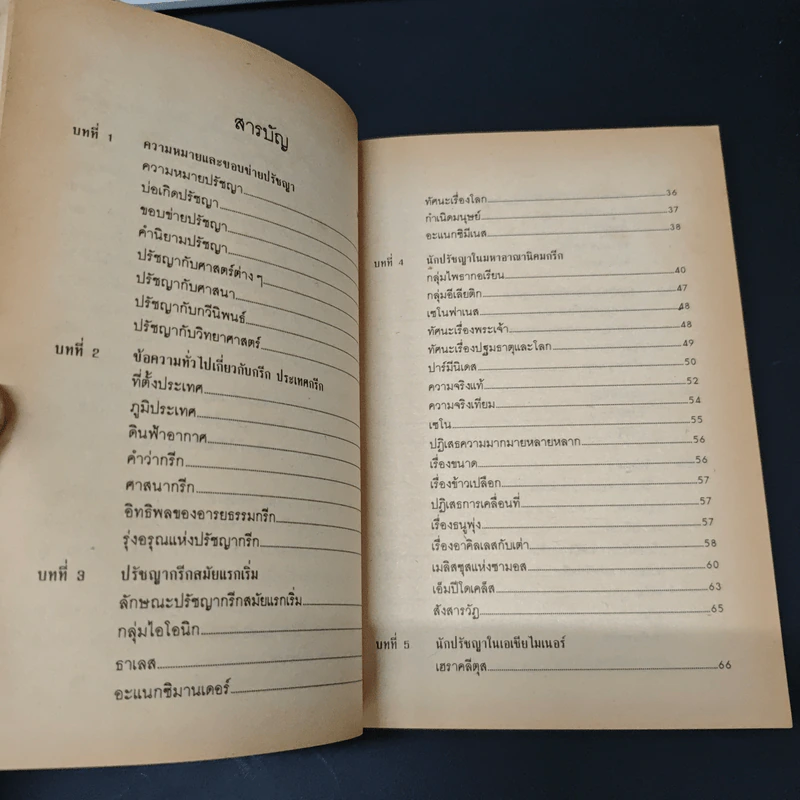 สารบัญ
บทที่ 1 ความหมายและขอบข่ายปรัชญา
ความหมายปรัชญา
บ่อเกิดปรัชญา
ขอบข่ายปรัชญา
คำนิยามปรัชญา
ปรัชญากับศาสตร์ต่าง ๆ
ปรัชญากับศาสนา
ปรัชญากับกวีนิพนธ์
ปรัชญากับวิทยาศาสตร์
บทที่ 2 ข้อความทั่วไปเกี่ยวกับกรีก ประเทศกรีก
ที่ตั้งประเทศ
ภูมิประเทศ
ดินฟ้าอากาศ
คำว่ากรีก
ศาสนากรีก
อิทธิพลของอารยธรรมกรีก
รุ่งอรุณแห่งปรัชญากรีก
บทที่ 3 ปรัชญากรีกสมัยแรกเริ่ม
ลักษณะปรัชญากรีกสมัยแรกเริ่ม
กลุ่มไอโอนิก
ธาเลส
อะแนกซิมานเดอร์
ทัศนะเรื่องโลก 36
กำเนิดมนุษย์ 37
อะแนกซิมีเนส 38
บทที่ 4 นักปรัชญาในมหาอาณานิคมกรีก
กลุ่มไพธากอเรียน 40
กลุ่มอีเลียติก 47
เซโนฟาเนส 48
ทัศนะเรื่องพระเจ้า 48
ทัศนะเรื่องปฐมธาตุและโลก 49
ปาร์มีนิเดส 50
ความจริงแท้ 52
ความจริงเทียม 54
เซโน 55
ปฏิเสธความมากมายหลายหลาก 56
เรื่องขนาด 56
เรื่องข้าวเปลือก 57
ปฏิเสธการเคลื่อนที่ 57
เรื่องธนูพุ่ง 57
เรื่องอาคิลเลสกับเต่า 58
เมลิสซุสแห่งซามอส 60
เอ็มปีโดเคล็ส 63
สังสารวัฏ 65
บทที่ 5 นักปรัชญาในเอเซียไมเนอร์
เฮราคลีตุส 66